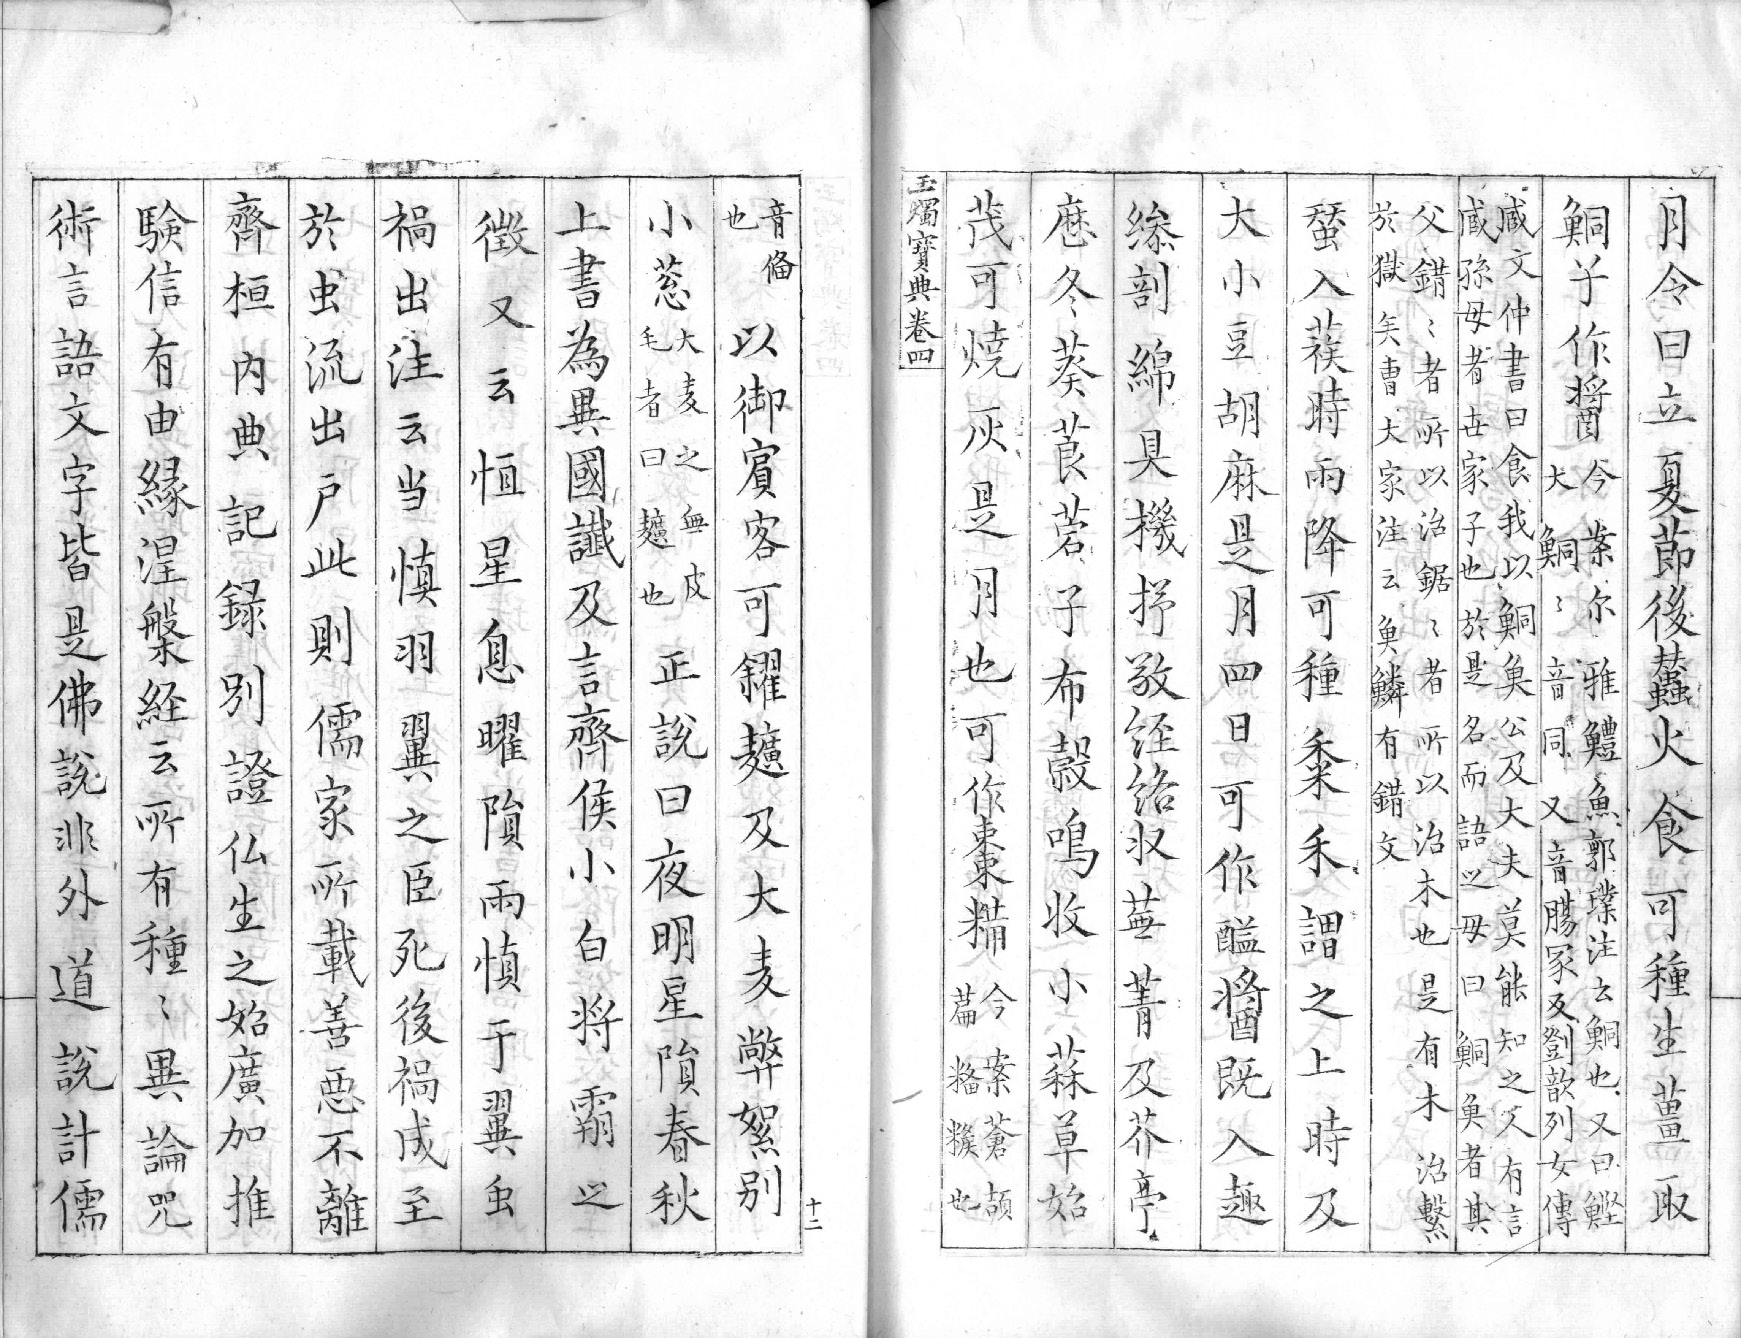 月令曰立夏莭後蠶火食可種生薑取
鮦子作醬今案尒雅鱧魚郭璞注云鮦也又曰鰹
大鮦〻音同又音腸冢反劉歆列女傳
臧文仲書曰食我以鮦魚公及大夫莫能知之又有言
臧孫母者世家子也於是召而語之母曰鮦魚者其
父錯〻者所以治鋸〻者所以治木也是有木治繫
於獄矣曹大家注云魚鱗有錯文
蝅入蔟時雨降可種黍禾謂之上時及
大小豆胡麻是月四日可作醢醬既入趣
繰剖綿具機抒敬経絡収蕪菁及芥亭
厯冬葵莨菪子布穀鳴收小蒜草始
茂可燒灰是月也可作棗糒今案蒼頡
篇糒糇也
玉燭寶典卷四
音俻
也以御賓客可糴䵃及大麦弊絮別
小葱大麦之無皮
毛者曰䵃也正說曰夜明星隕春秋
上書為異國讖及言齊侯小白将霸之
徵又云恒星息曜隕雨慎于翼虫
禍出注云当慎羽翼之臣死後禍成至
於虫流出户此則儒家所載善惡不離
齊桓内典記録別證仏生之始廣加推
験信有由縁涅槃経云所有種〻異論咒
術言語文字皆是佛說非外道說計儒
十二